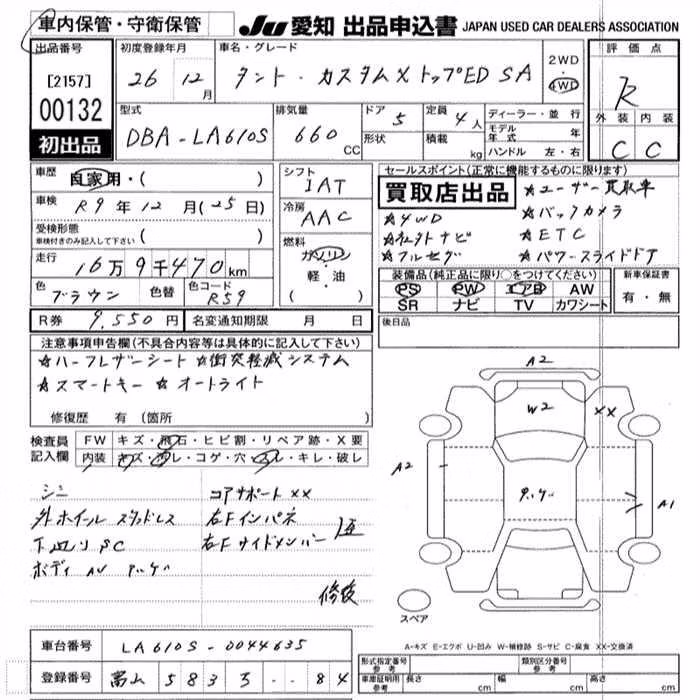 車内保管・守衛保管
JU 愛知 出品申込書 JAPAN USED CAR DEALERS ASSOCIATION
出品番号
[2157]
00132
初出品
初度登録年月
26 12月
車名・グレード
タント・カスタムX トップED SA
2WD
・
4WD
評価点
R
外装 内装
C C
型式
DBA-LA610S
排気量
660 CC
ドア 5
形状
定員 4人
積載 kg
ディーラー・並行
モデル年式 年
ハンドル 左・右
車歴 自家用・( )
車検 R9年12月(25日)
受検形態
車検付きのみ記入して下さい ( )
走行 16万9千470km
色 ブラウン 色替 色コード R59
シフト
IAT
冷房
AAC
燃料
ガソリン
軽・油
( )
セールスポイント(正常に機能するものに限ります)
買取店出品
★ユーザー買取車
★4WD
★バックカメラ
★社外ナビ
★ETC
★フルセグ
★パワースライドドア
装備品(純正品に限り○をつけてください)
PS PW エアB AW
SR ナビ TV カワシート
新車保証書
有・無
R券 9,550円 名変通知期限 月 日
後日品
注意事項申告欄(不具合内容等は具体的に記入して下さい)
★ハーフレザーシート ★衝突軽減システム
★スマートキー ★オートライト
修復歴 有 (箇所 )
検査員
記入欄
FW キズ・飛石・ヒビ割・リペア跡・X要
内装 キズ・汚レ・コゲ・穴・スレ・キレ・破レ
外ホイール スタッドレス
下廻りSC
コアサポートXX
右Fインパネ
右Fサイドメンバー
修複
A2
W2
XX
A2
A1
スペア
A-キズ E-エクボ U-凹み W-補修跡 S-サビ C-腐食 XX-交換済
車台番号 LA610S-0044635
登録番号 富山 583 ・・84
形式指定番号
参考
類別区分番号
参考
車庫証明用
参考
長さ cm 幅 cm 高さ cm